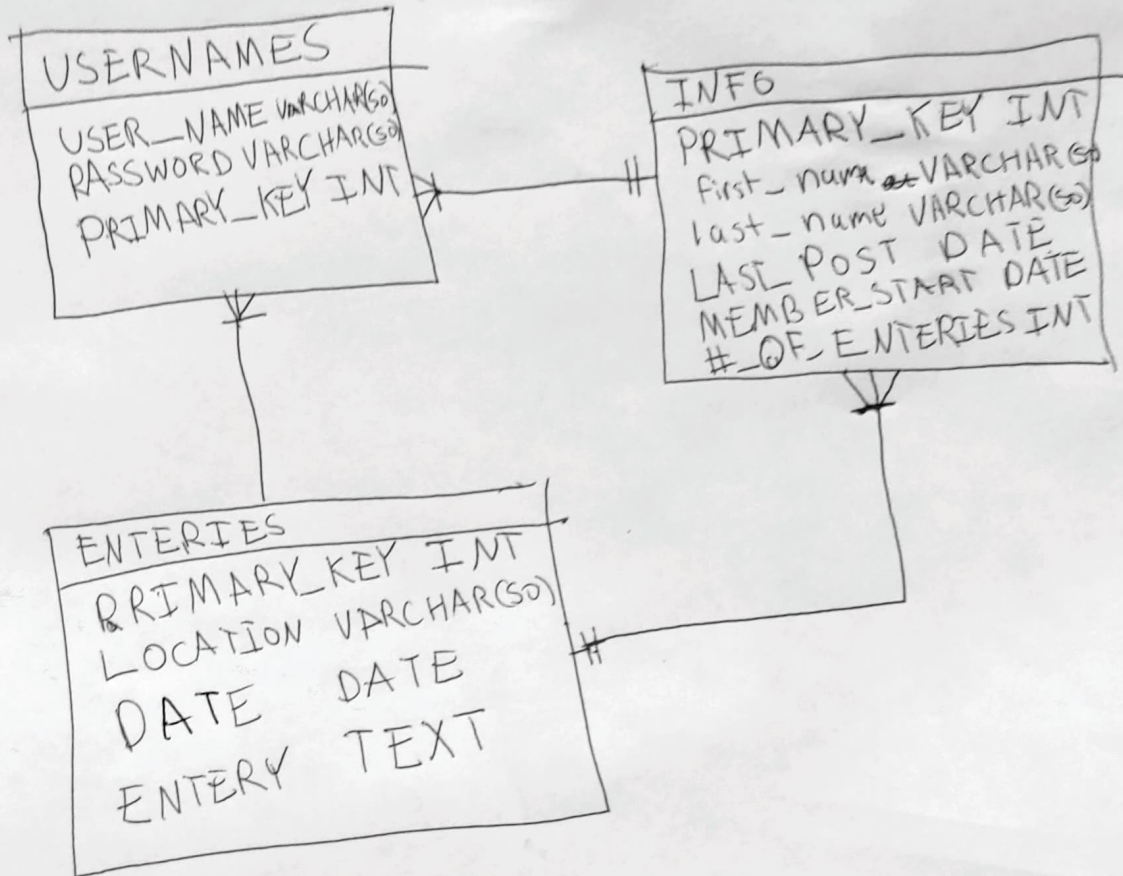 USERNAMES
USER_NAME VARCHAR(50)
PASSWORD VARCHAR(50)
PRIMARY_KEY INT
INFO
PRIMARY_KEY INT
first_name VARCHAR(50)
last_name VARCHAR(50)
LAST_POST DATE
MEMBER_START DATE
#_OF_ENTERIES INT
ENTERIES
PRIMARY_KEY INT
LOCATION VARCHAR(50)
DATE DATE
ENTERY TEXT